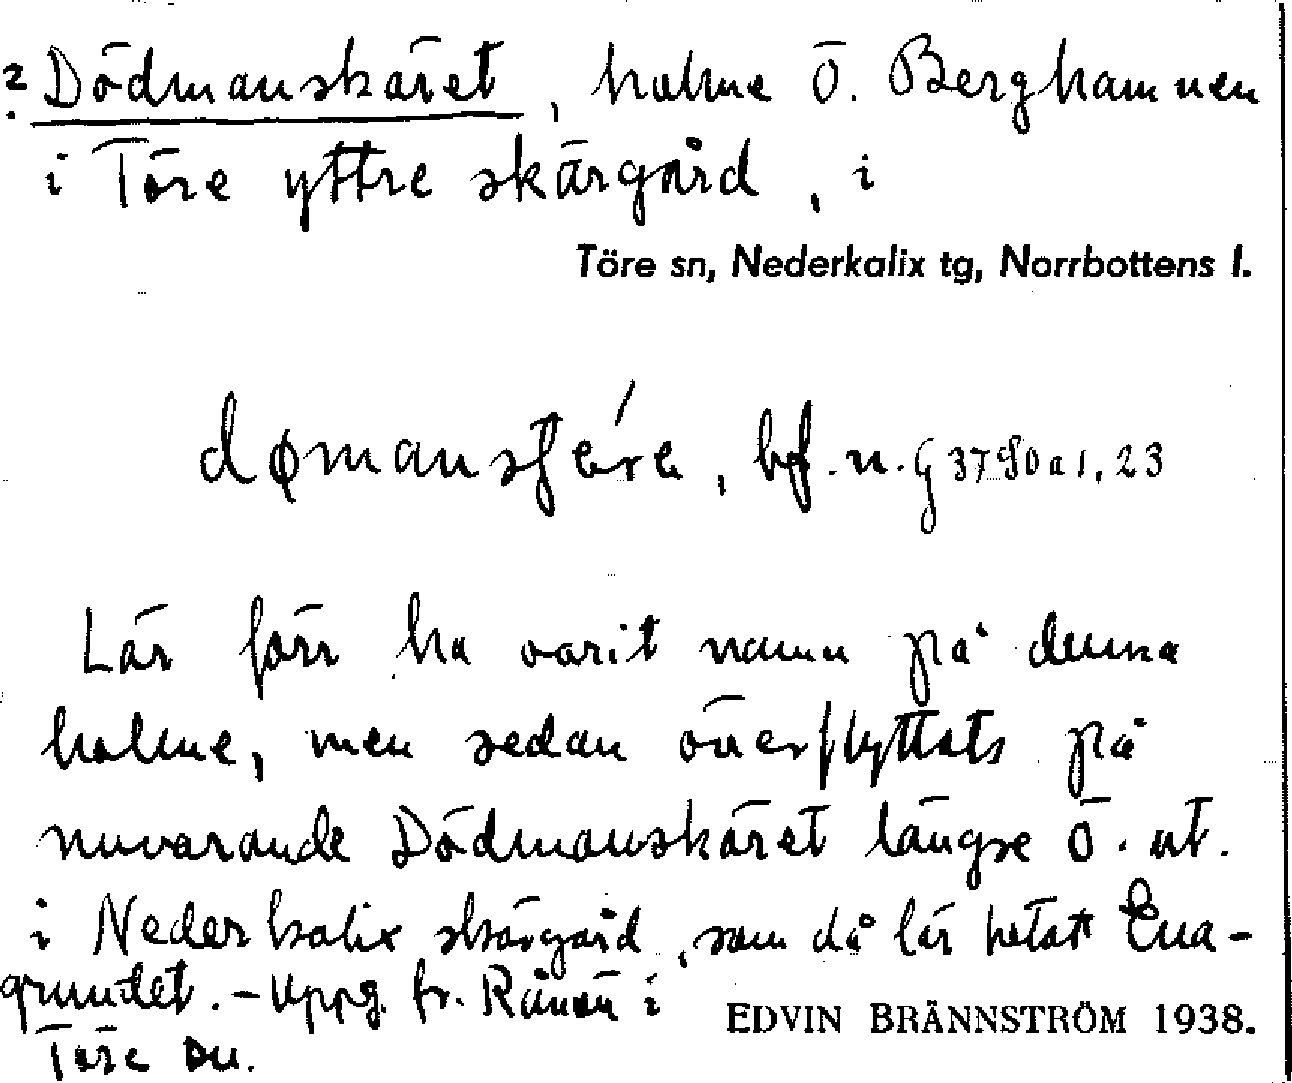 ? Dödmanskäret, holme Ö. Berghamnen
i Töre yttre skärgård, i
Töre sn, Nederkalix tg, Norrbottens l.
bf. n.
Lär förr ha varit namn på denna
holme, men sedan överflyttats på
nuvarande Dödmanskäret längre Ö. ut.
i Nederkalix skärgård, som då lär hetat
grundet. – Uppg. fr. Rånön i
Töre sn.
EDVIN BRÄNNSTRÖM 1938.